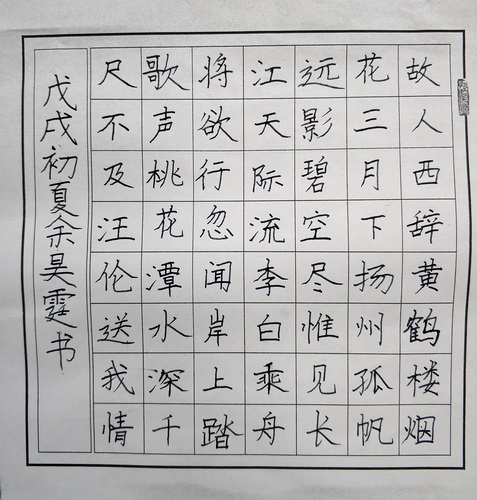 故人西辞黄鹤楼烟
花三月下扬州孤帆
远影碧空尽惟见长
江天际流李白乘舟
将欲行忽闻岸上踏
歌声桃花潭水深千
尺不及汪伦送我情
戊戌初夏余昊霆书